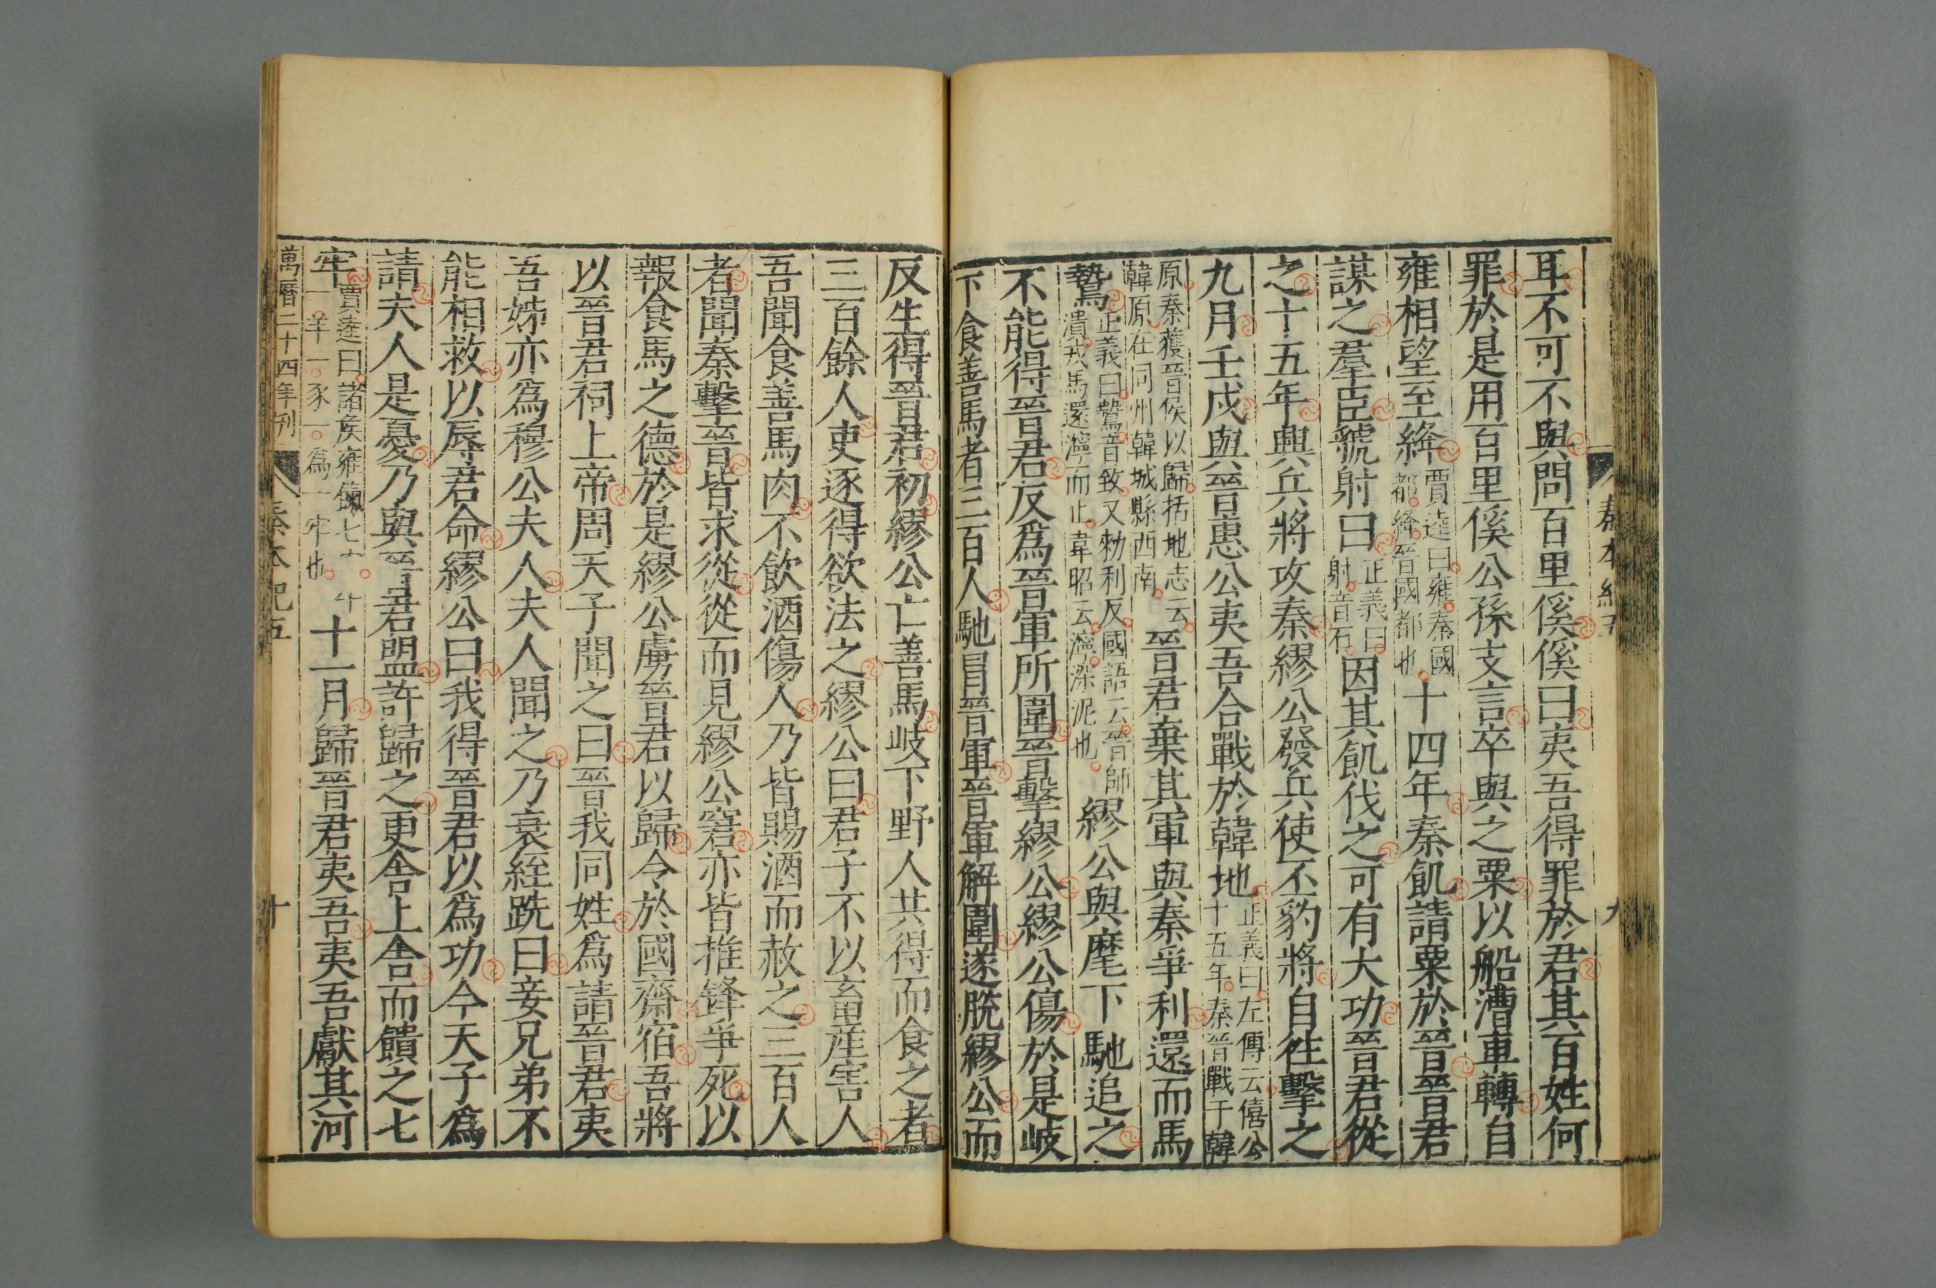 秦本紀五 九
耳不可不與問百里傒傒曰夷吾得罪於君其百姓何
罪於是用百里傒公孫支言卒與之粟以船漕車轉自
雍相望至絳賈逵曰雍秦國都絳晉國都也十四年秦飢請粟於晉晉君
謀之羣臣虢射曰正義曰射音石因其飢伐之可有大功晉君從
之十五年興兵將攻秦繆公發兵使丕豹將自往擊之
九月壬戌與晉惠公夷吾合戰於韓地正義曰左傳云僖公十五年秦晉戰于韓
原秦獲晉侯以歸括地志云韓原在同州韓城縣西南晉君棄其軍與秦爭利還而馬
騺正義曰騺音致又勑利反國語云晉師潰戎馬還濘而止韋昭云濘深泥也繆公與麾下馳追之
不能得晉君反爲晉軍所圍晉擊繆公繆公傷於是岐
下食善馬者三百人馳冒晉軍晉軍解圍遂脫繆公而
反生得晉君初繆公亡善馬岐下野人共得而食之者
三百餘人吏逐得欲法之繆公曰君子不以畜產害人
吾聞食善馬肉不飲酒傷人乃皆賜酒而赦之三百人
者聞秦擊晉皆求從從而見繆公窘亦皆推鋒爭死以
報食馬之德於是繆公虜晉君以歸令於國齋宿吾將
以晉君祠上帝周天子聞之曰晉我同姓爲請晉君夷
吾姊亦爲穆公夫人夫人聞之乃衰絰跣曰妾兄弟不
能相救以辱君命繆公曰我得晉君以爲功今天子爲
請夫人是憂乃與晉君盟許歸之更舍上舍而饋之七
牢賈逵曰諸侯雍餼七牢牛一羊一豕一爲一牢也十一月歸晉君夷吾夷吾獻其河
萬曆二十四年刊 秦本紀五 十